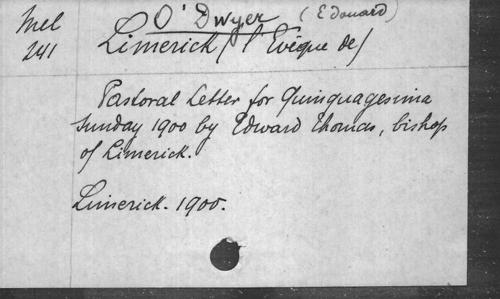 Mel O'Dwyer (Edouard)
241 Limerick (l'Evêque de)
Pastoral Letter for Quinquagesima
Sunday 1900 by Edward Thomas, bishop
of Limerick.
Limerick. 1900.